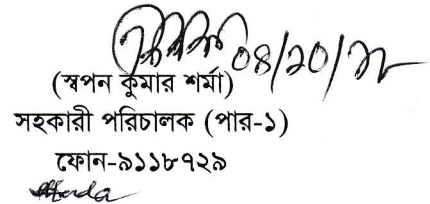 ০৪/১০/১৮
(স্বপন কুমার শর্মা)
সহকারী পরিচালক (পার-১)
ফোন-৯১১৮৭২৯